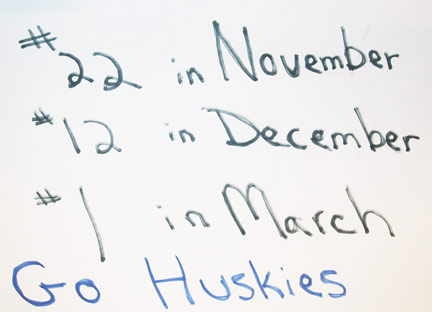 #22 in November
#12 in December
#1 in March
Go Huskies